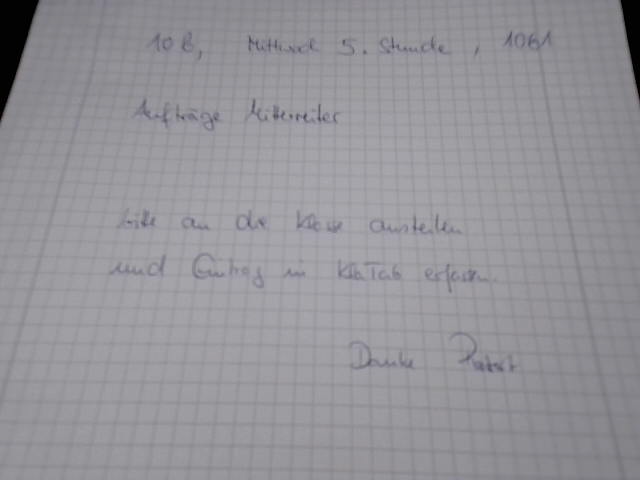 10 B, Mittwoch 5. Stunde, 1061
Aufträge
bitte an die Klasse austeilen
und Eintrag in KlaTab erfassen.
Danke